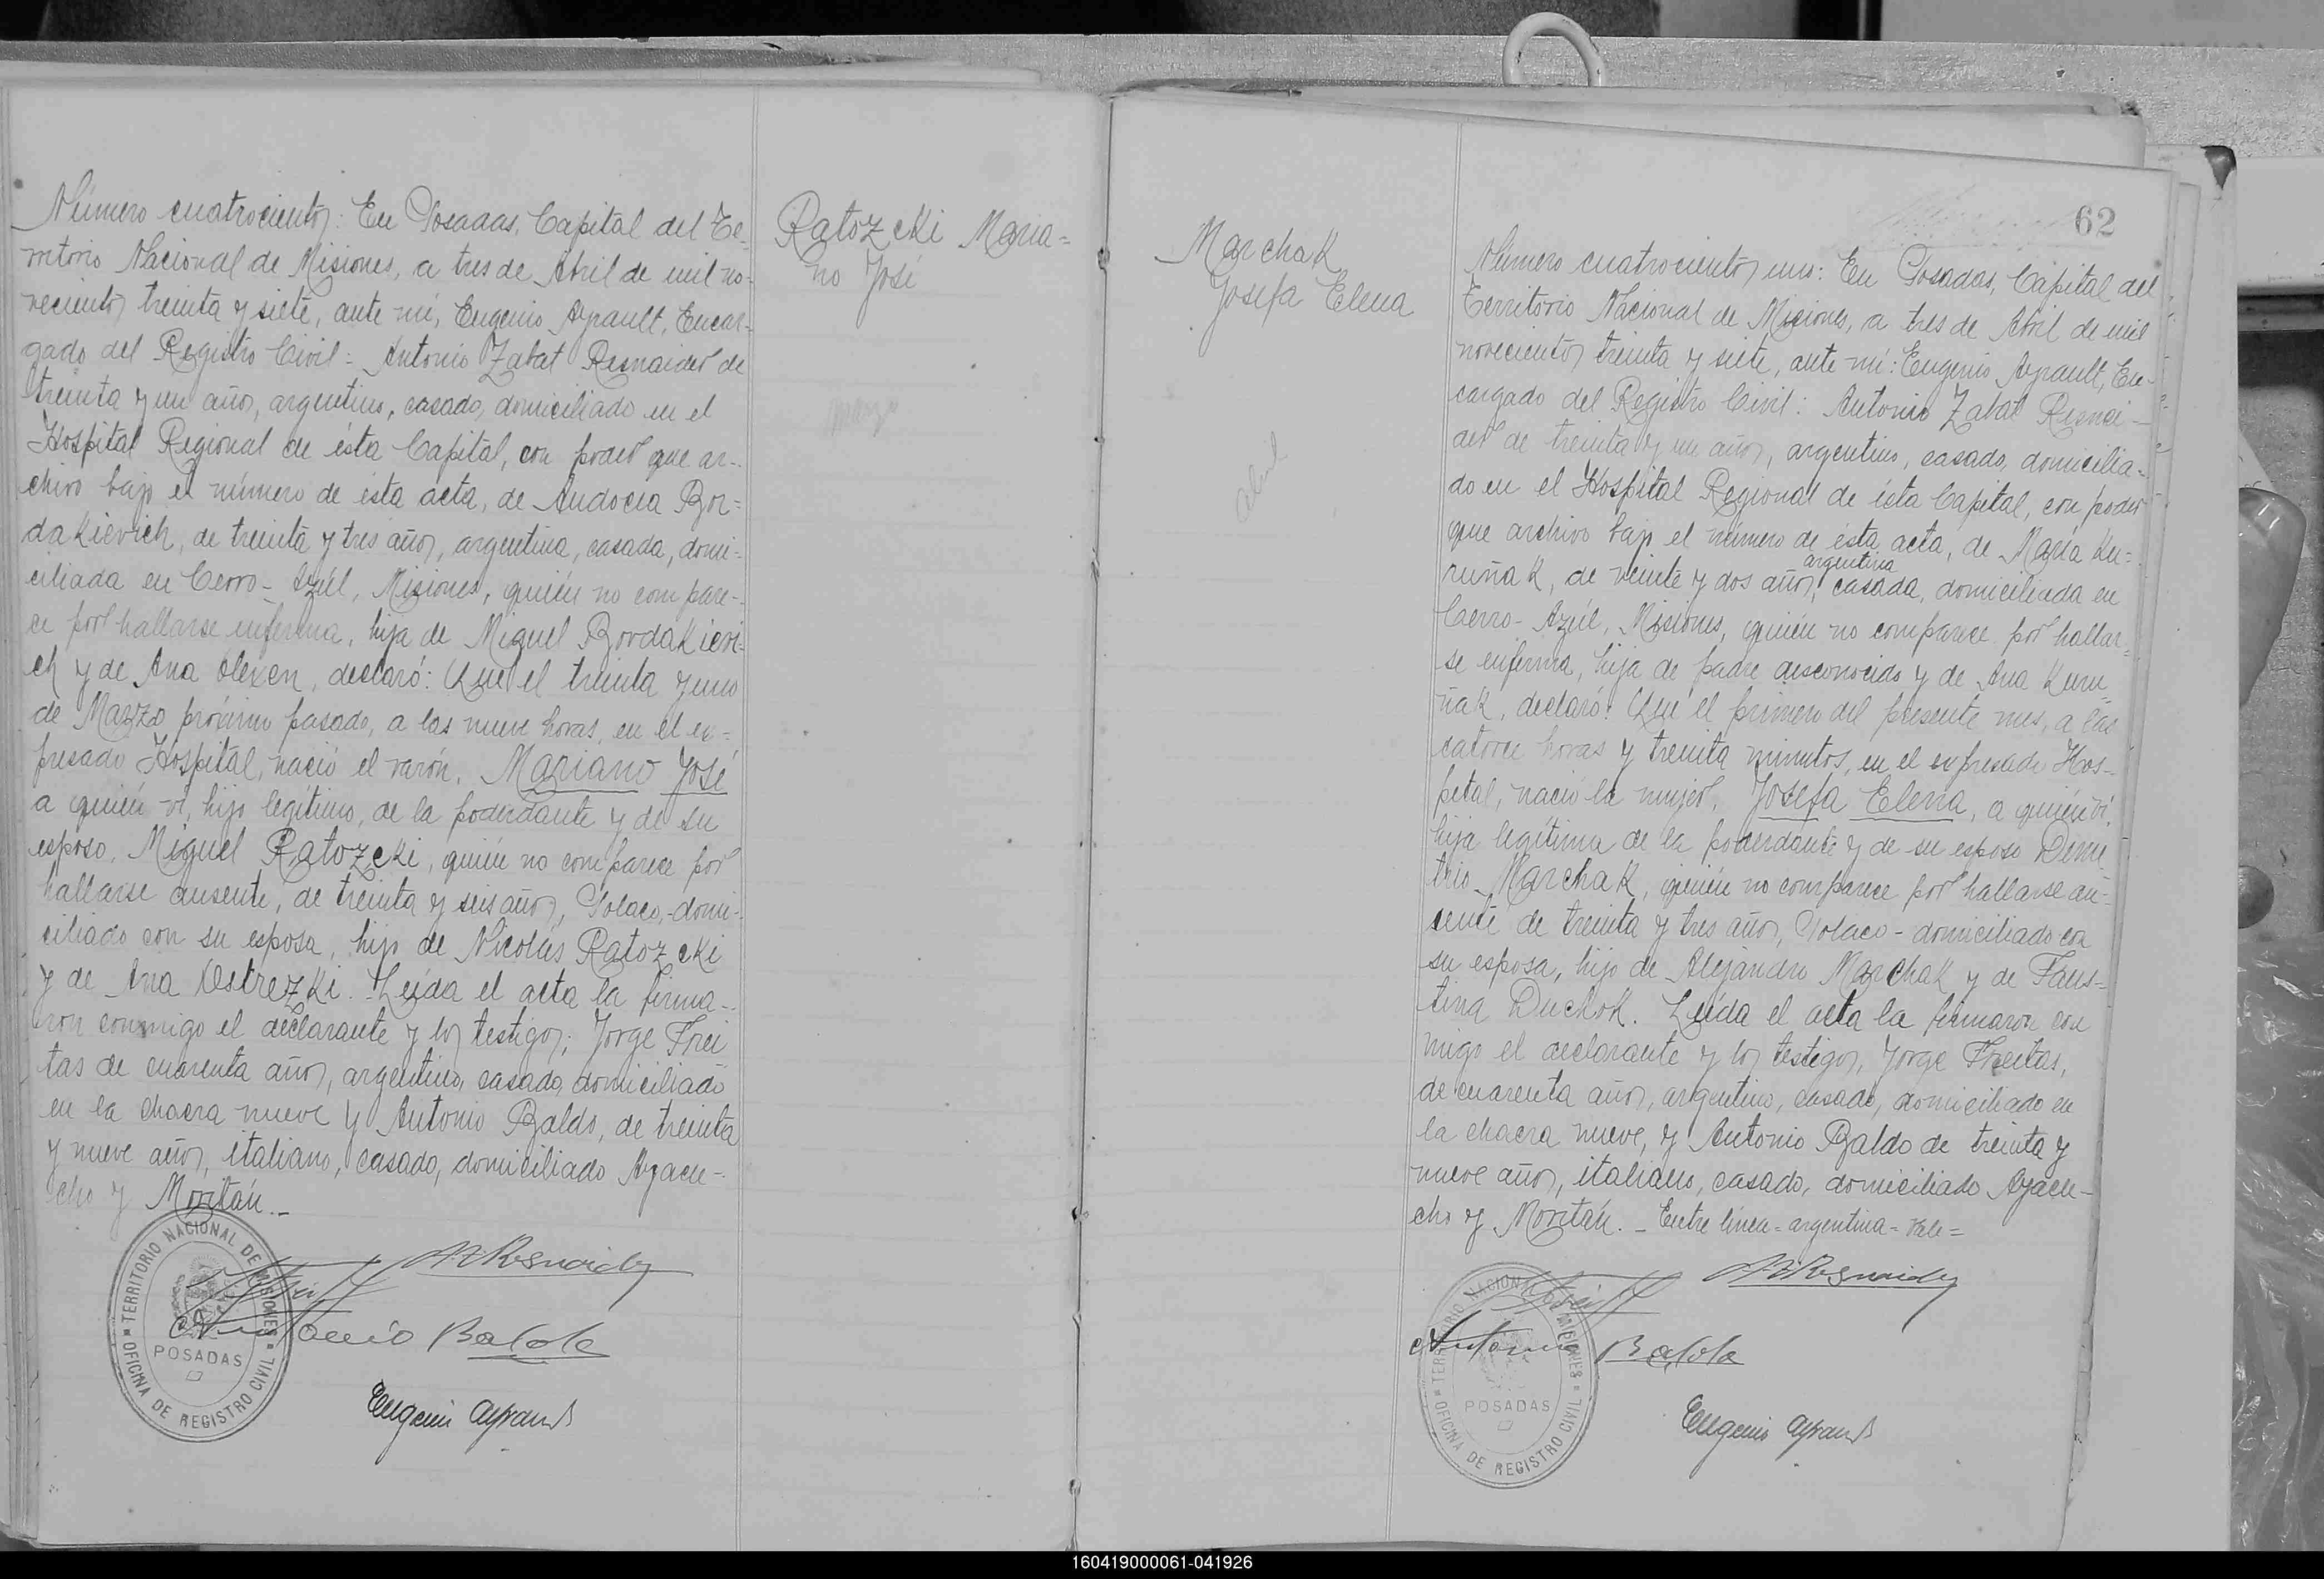 Número cuatrocientos: En Posadas, Capital del Te-
rritorio Nacional de Misiones, a tres de Abril de mil no-
vecientos treinta y siete, ante mí, Eugenio Ayrault, Encar-
gado del Registro Civil: Antonio Zabat Resnaider de
treinta y un años, argentino, casado, domiciliado en el
Hospital Regional de ésta Capital, con poder que ar-
chivo bajo el número de ésta acta, de Audocia Bor=
dakievich, de treinta y tres años, argentina, casada, domi-
ciliada en Cerro-Azúl, Misiones, quién no compare-
ce por hallarse enferma, hija de Miguel Bordakievi-
ch y de Ana Olexen, declaró: Que el treinta y uno
de Marzo próximo pasado, a las nueve horas, en el ex=
presado Hospital, nació el varón, Mariano José
a quién ví, hijo legítimo, de la poderdante y de su
esposo, Miguel Ratozcki, quién no comparece por
hallarse ausente, de treinta y seis años, Polaco, domi-
ciliado con su esposa, hijo de Nicolás Ratozcki
y de Ana Ostrezki. Leída el acta la firma-
ron conmigo el declarante y los testigos; Jorge Frei
tas de cuarenta años, argentino, casado, domiciliado
en la chacra nueve y Antonio Baldo, de treinta
y nueve años, italiano, casado, domiciliado Ayacu-
cho y Moritán.-
Ratozcki Maria=
no José
marzo
TERRITORIO NACIONAL DE MISIONES
POSADAS
OFICINA DE REGISTRO CIVIL
AZResnaider
Antonio Baldo
Eugenio Ayrault
62
Marchak
Josefa Elena
abril
Número cuatrocientos uno: En Posadas, Capital del
Territorio Nacional de Misiones, a tres de Abril de mil
novecientos treinta y siete, ante mí: Eugenio Ayrault, En-
cargado del Registro Civil: Antonio Zabat Resnai-
der de treinta y un años, argentino, casado, domicilia-
do en el Hospital Regional de ésta Capital, con poder
que archivo bajo el número de ésta acta, de María Ku=
argentina
ruñak, de veinte y dos años, casada, domiciliada en
Cerro-Azúl, Misiones, quién no comparece por hallar-
se enferma, hija de padre desconocido y de Ana Kuru-
ñak, declaró: Que el primero del presente mes, a las
catorce horas y treinta minutos, en el expresado Hos-
pital, nació la mujer, Josefa Elena, a quién ví,
hija legítima de la poderdante y de su esposo Deme
trio Marchak, quién no comparece por hallarse au-
sente de treinta y tres años, Polaco- domiciliado con
su esposa, hijo de Alejandro Marchak y de Faus-
tina Duchok. Leída el acta la firmaron con
migo el declarante y los testigos, Jorge Freitas,
de cuarenta años, argentino, casado, domiciliado en
la chacra nueve, y Antonio Baldo de treinta y
nueve años, italiano, casado, domiciliado Ayacu-
cho y Moritán.- Entre línea=argentina=Vale=
TERRITORIO NACIONAL DE MISIONES
POSADAS
OFICINA DE REGISTRO CIVIL
AZResnaider
Antonio Baldo
Eugenio Ayrault
160419000061-041926